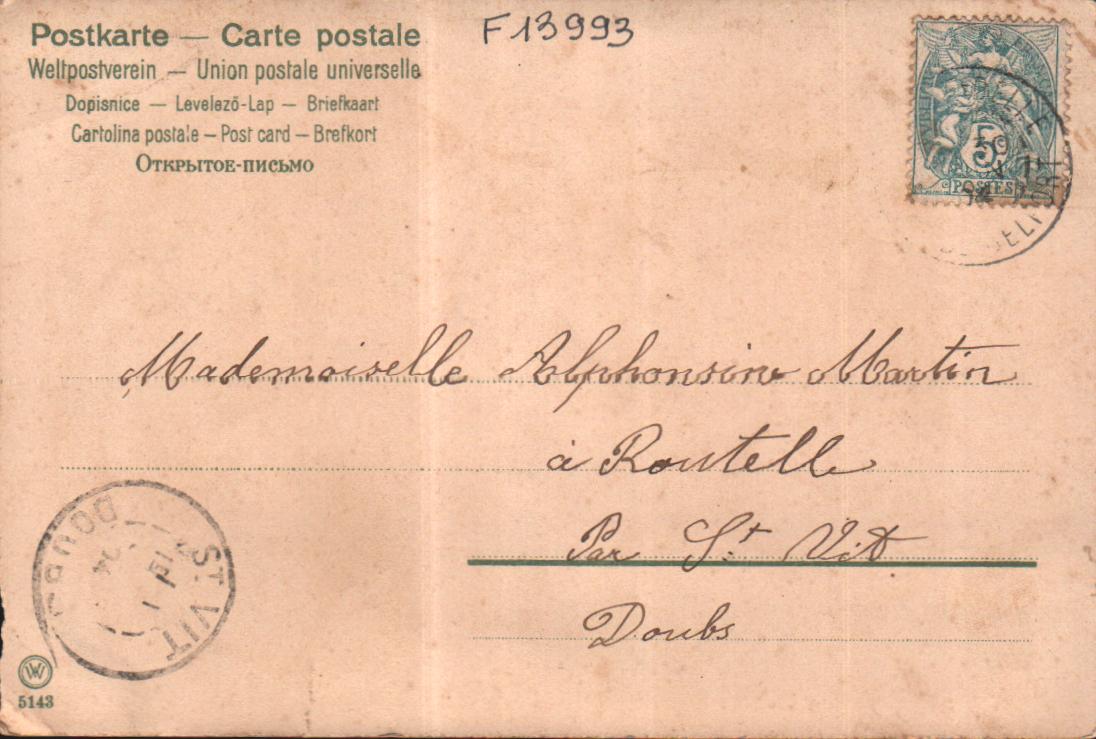 Postkarte — Carte postale
Weltpostverein — Union postale universelle
Dopisnice — Levelező-Lap — Briefkaart
Cartolina postale — Post card — Brefkort
Открытое-письмо
F13993
5
POSTES
Mademoiselle Alphonsine Martin
à Routelle
Par St Vit
Doubs
ST VIT
DOUBS
W
5143